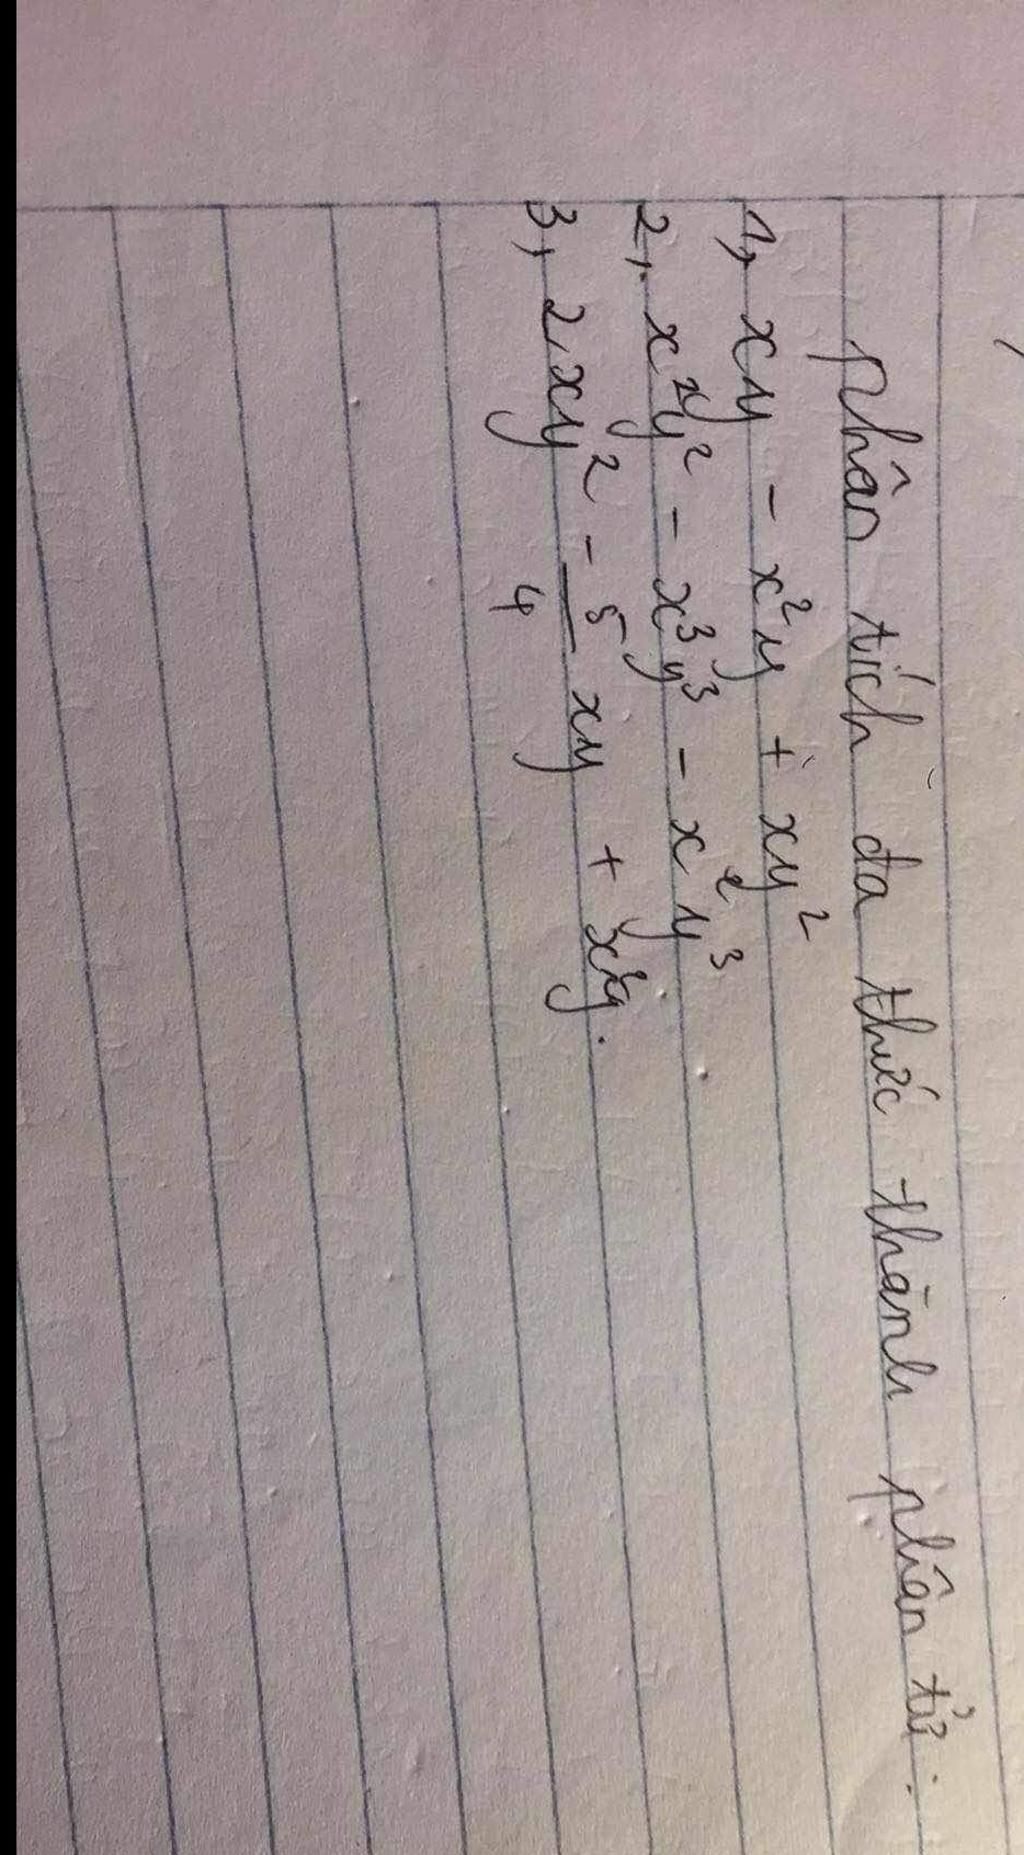 phân tích đa thức thành phân tử:
1, xy - x²y + xy²
2, x²y² - x³y³ - x²y³
3, 2xy² - 5/4 xy + x²y.